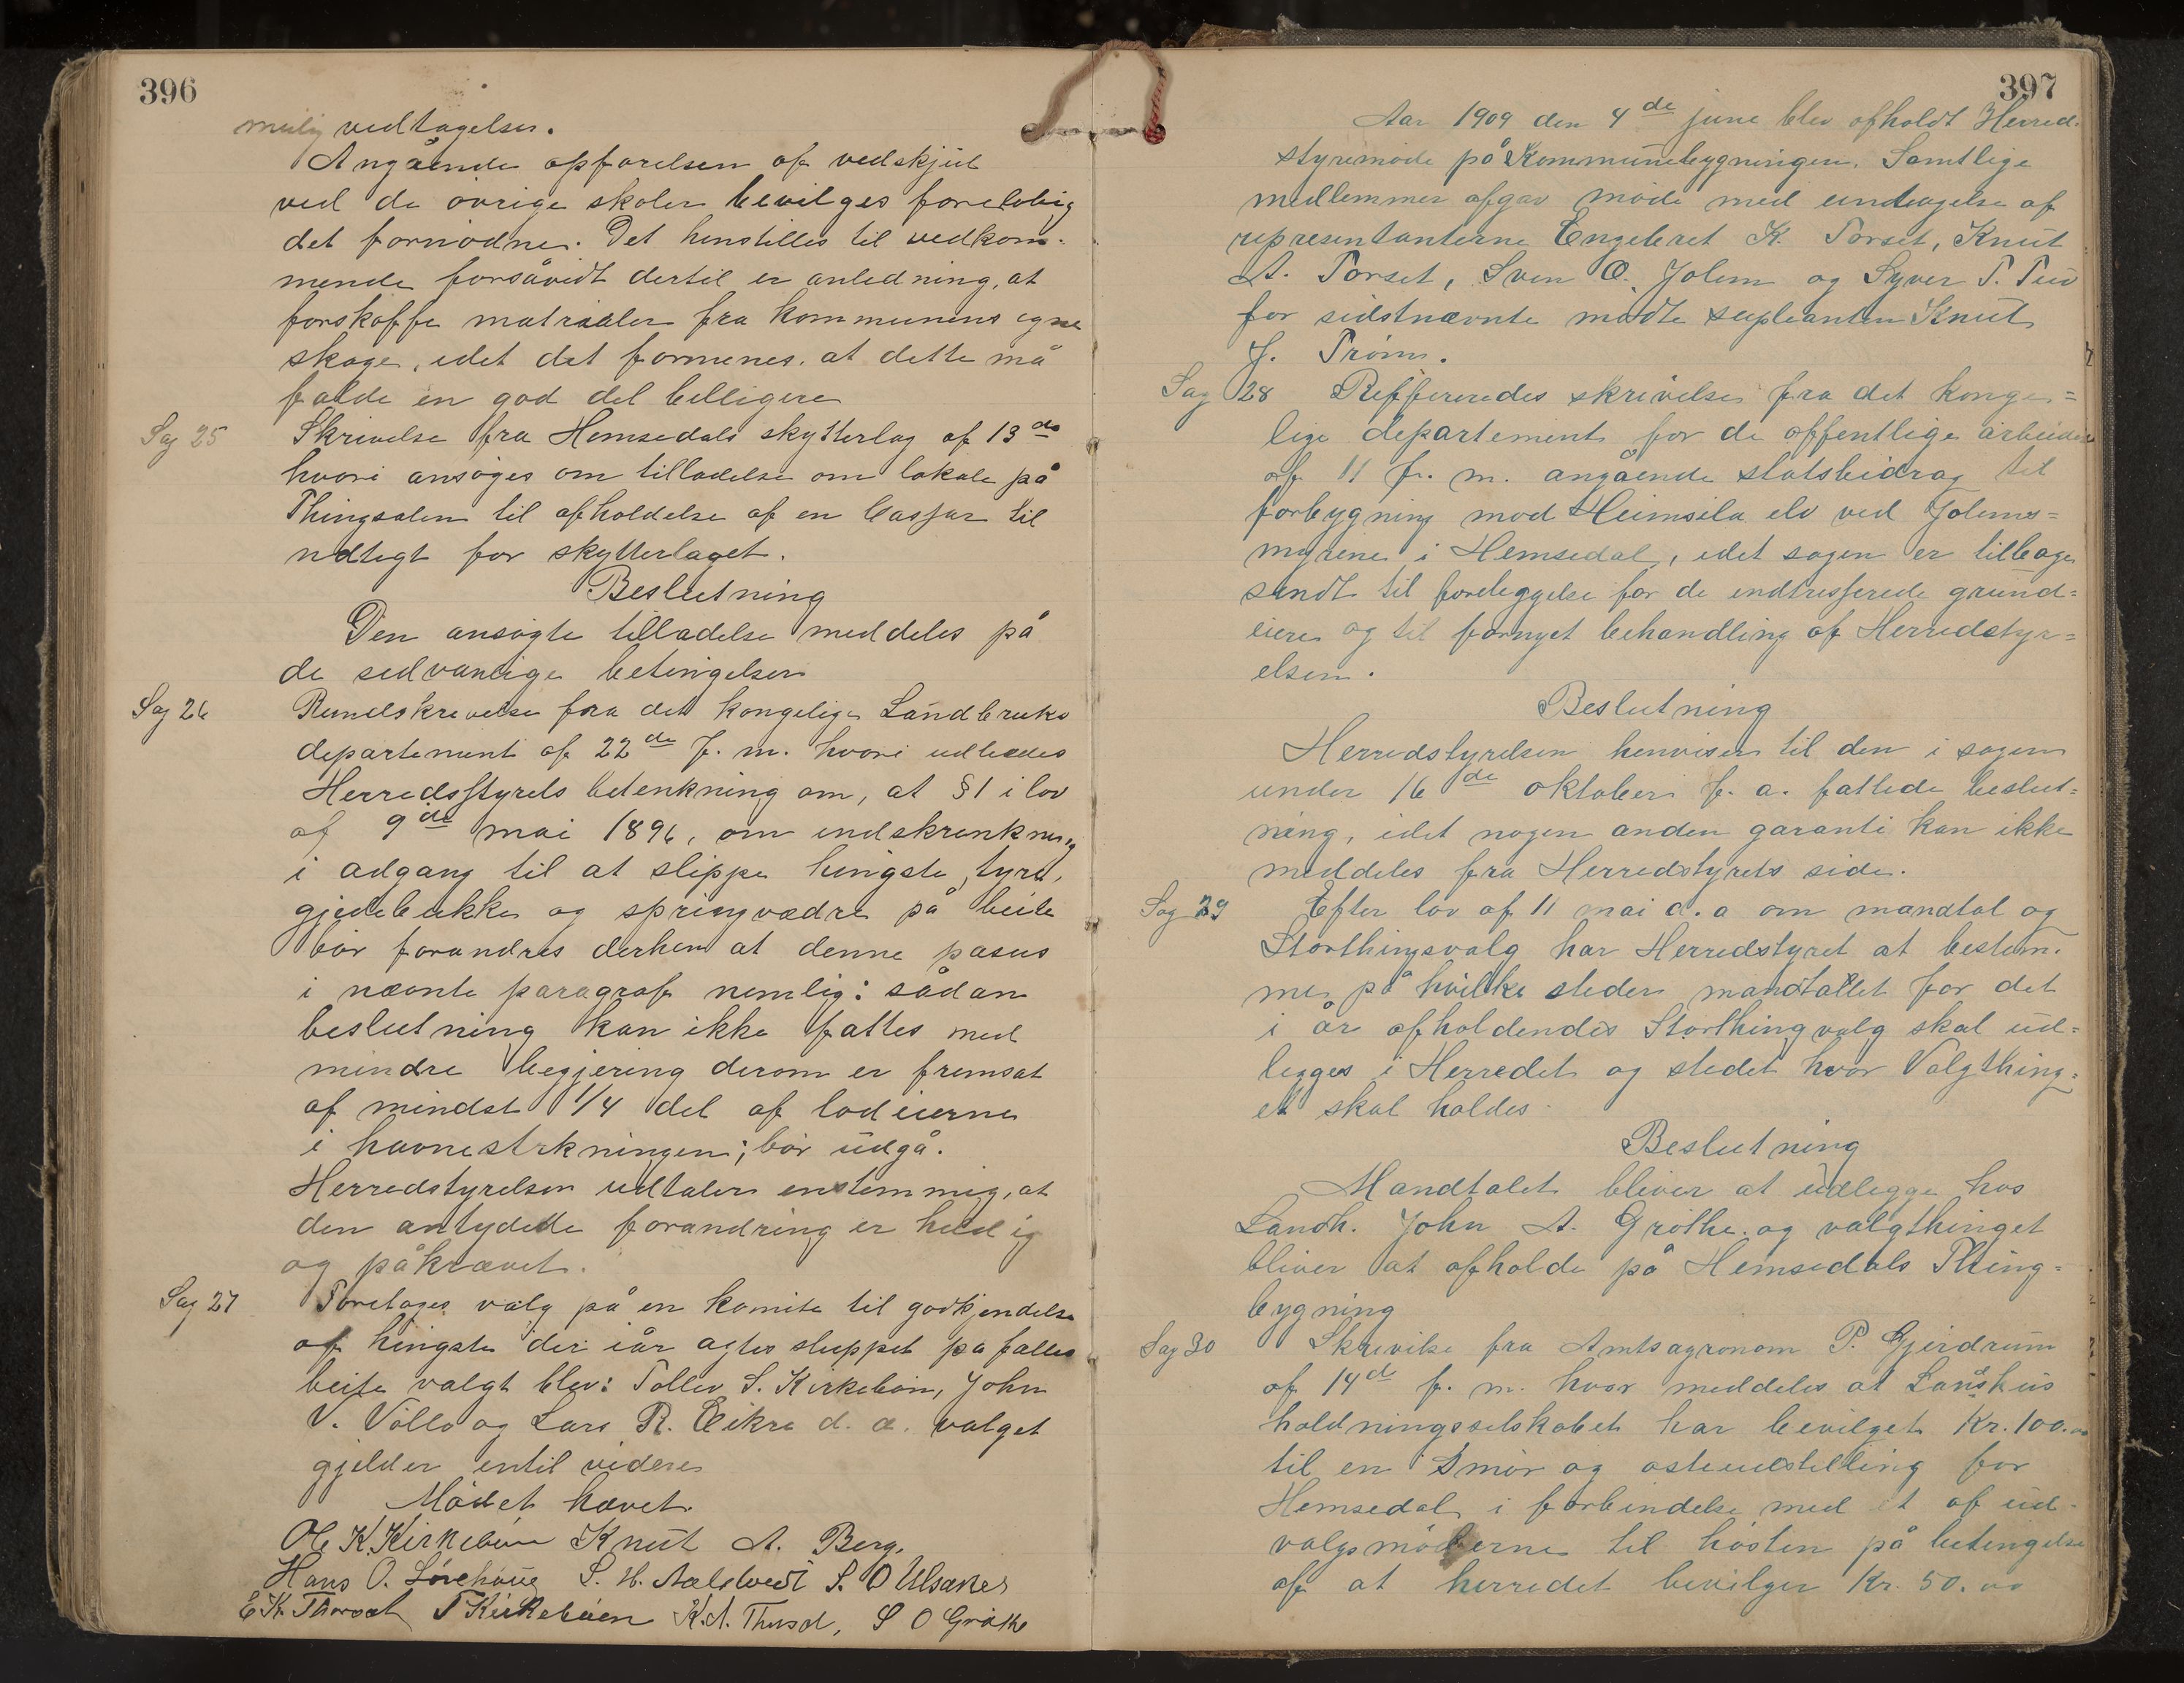 396
vedtagelser.
Angående opførelsen af vedskjul
ved de øvrige skoler bevilges forelobig
det fornødne. Det henstilles til vedkom-
mende forsåvidt dertil er anledning, at
forskaffe matrialer fra kommunens egne
skoge, idet det formenes at dette må
falde en god del billigere
Sag 25 Skrivelse fra Hemsedals skytterlag af 13de
hvori ansøges om tilladelse om lokale på
Thingsalen til afholdelse af en Bassar til
indtægt for skytterlaget.
Beslutning
Den ansøgte tilladelse meddeles på
de sedvanlige betingelser
Sag 26 Rundskrivelse fra det kongelige Landbruks
departement af 22de f. m. hvori udbedes
Herredsstyrets betenkning om, at §1 i lov
af 9de mai 1896, om indskrenkning
i adgang til at slippe hingste, tyre,
gjedebukke og springvædre på beite
bør forandres derhen at denne pasus
i nævnte paragraf nemlig: sådan
beslutning kan ikke fattes med
mindre begjering derom er fremsat
af mindst 1/4 del af lodeierne
i havnestrkningen; bør udgå.
Herredstyrelsen udtaler enstemmig, at
den antydede forandring er heldig
og påkrævet.
Sag 27 Foretages valg på en komite til godkjendelse
af hingste der iår agtes sluppet på fælles
beite valgt blev: Tollev S. Kirkebøin, John
V. Vøllo og Lars R. Eikre d. æ. valget
gjelder intil videre
Mødet hævet.
Ole K. Kirkebøin Knut A. Berg.
Hans O. S. H. S. O Ulsaker
E K. Thorset T Kirkebøen K. A. Thorset, S O Grøthe
397
Aar 1909 den 4de june blev afholdt Herred-
styremøde på Kommunebygningen. Samtlige
medlemmer afgav møde med undtagelse af
representanterne Engebret K. Torset, Knut
A. Torset, Sven O. Jolem og Syver T.
for sidstnævnte mødte supleanten Knut
J. Trøim.
Sag 28 Reffereredes skrivelse fra det konge=
lige departement for de offentlige arbeider
af 11 f. m. angående statsbidrag til
forbygning mod Heimsila elv ved Jolems=
myrene i Hemsedal, idet sagen er tilbage
sendt til foreleggelse for de indtresserede grund=
eiere og til fornyet behandling af Herredstyr=
elsen.
Beslutning
Herredstyrelsen henviser til den i sagen
under 16de oktober f. a. fattede beslut=
ning, idet nogen anden garanti kan ikke
meddeles fra Herredstyrets side.
Sag 29 Efter lov af 11 mai d. a om mandtal og
Storthingsvalg har Herredstyret at bestem-
me på hvilke steder mandtallet for det
i år afholdendes Storthingvalg skal ud=
legges i Herredet og stedet hvor Valgthing=
et skal holdes
Beslutning
Mandtalet bliver at udlegge hos
Landh. John A. Grøthe og valgthinget
bliver at afholde på Hemsedals Thing=
bygning
Sag 30 Skrivelse fra Amtsagronom P. Gjerdrum
af 14de f. m. hvor meddeles at Landhus
holdningsselskabet har bevilget Kr. 100.00
til en Smør og osteudstilling for
Hemsedal i forbindelse med et af ud-
valgsmøderne til høsten på betingelse
af at herredet bevilger Kr. 50.00